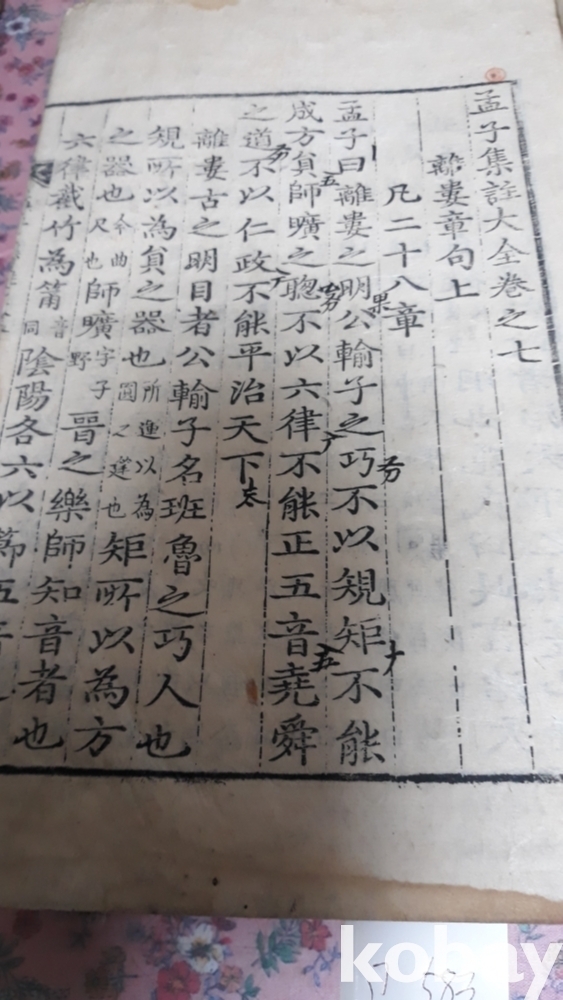 孟子集註大全卷之七
離婁章句上
凡二十八章
孟子曰離婁之明公輸子之巧不以規矩不能
成方員師曠之聰不以六律不能正五音堯舜
之道不以仁政不能平治天下
離婁古之明目者公輸子名班魯之巧人也
規所以為員之器也所運以為圜之
之器也今曲尺也師曠字子野晉之樂師知音者也
六律截竹為筩音同陰陽各六以節五音
kobay
583